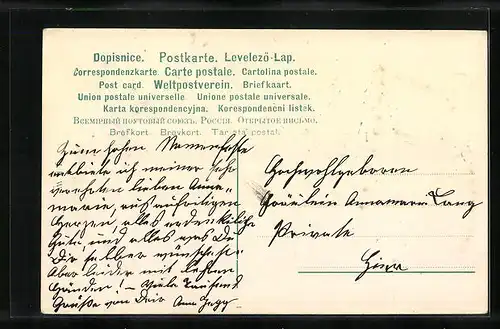 Dopisnice. Postkarte. Levelező-Lap.
Correspondenzkarte. Carte postale. Cartolina postale.
Post card. Weltpostverein. Briefkaart.
Union postale universelle. Unione postale universale.
Karta korespondencyjna. Korespondenční lístek.
Всемірный почтовый союзъ. Россія. Открытое письмо.
Brefkort. Brevkort. Tarjeta postal.
Zum hohen Namensfeste
entbiete ich meiner sehr
verehrten lieben Anna-
marie, aus aufrichtigem
Herzen alles erdenkliche
Gute und alles was Du
Dir selber wünschest.
Aber leider mit leeren
Händen! – Viele Tausend
Grüße von Deir Anna
Hochwohlgeboren
Fräulein Annamarie Lang
Private
Hier